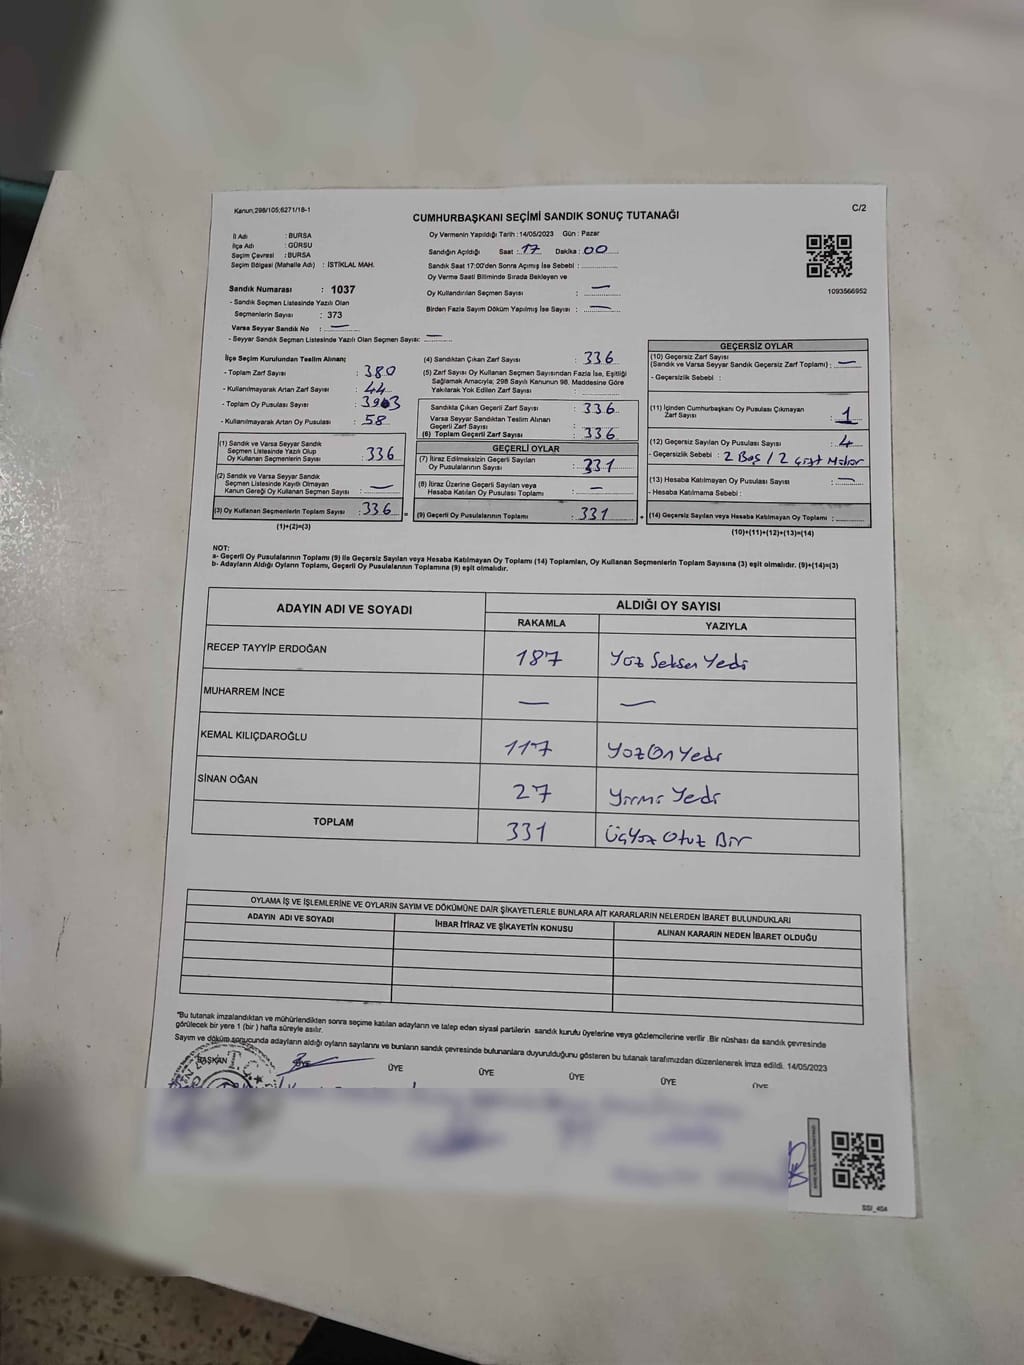 Kanun;298/105;6271/18-1
C/2
CUMHURBAŞKANI SEÇİMİ SANDIK SONUÇ TUTANAĞI
İl Adı : BURSA
İlçe Adı : GÜRSU
Seçim Çevresi : BURSA
Seçim Bölgesi (Mahalle Adı) : İSTİKLAL MAH.
Oy Vermenin Yapıldığı Tarih : 14/05/2023 Gün : Pazar
Sandığın Açıldığı Saat : 17 Dakika : 00
Sandık Saat 17:00'den Sonra Açımış İse Sebebi :
Oy Verme Saati Bitiminde Sırada Bekleyen ve
Oy Kullandırılan Seçmen Sayısı : —
Birden Fazla Sayım Döküm Yapılmış İse Sayısı : —
1093566952
Sandık Numarası : 1037
- Sandık Seçmen Listesinde Yazılı Olan
Seçmenlerin Sayısı : 373
Varsa Seyyar Sandık No : —
- Seyyar Sandık Seçmen Listesinde Yazılı Olan Seçmen Sayısı: —
İlçe Seçim Kurulundan Teslim Alınan;
- Toplam Zarf Sayısı : 380
- Kullanılmayarak Artan Zarf Sayısı : 44
- Toplam Oy Pusulası Sayısı :
- Kullanılmayarak Artan Oy Pusulası : 58
(1) Sandık ve Varsa Seyyar Sandık
Seçmen Listesinde Yazılı Olup
Oy Kullanan Seçmenlerin Sayısı : 336
(2) Sandık ve Varsa Seyyar Sandık
Seçmen Listesinde Kayıtlı Olmayan
Kanun Gereği Oy Kullanan Seçmen Sayısı : —
(3) Oy Kullanan Seçmenlerin Toplam Sayısı : 336 =
(1)+(2)=(3)
(4) Sandıktan Çıkan Zarf Sayısı : 336
(5) Zarf Sayısı Oy Kullanan Seçmen Sayısından Fazla İse, Eşitliği
Sağlamak Amacıyla; 298 Sayılı Kanunun 98. Maddesine Göre
Yakılarak Yok Edilen Zarf Sayısı :
Sandıkta Çıkan Geçerli Zarf Sayısı : 336
Varsa Seyyar Sandıktan Teslim Alınan
Geçerli Zarf Sayısı :
(6) Toplam Geçerli Zarf Sayısı : 336
GEÇERLİ OYLAR
(7) İtiraz Edilmeksizin Geçerli Sayılan
Oy Pusulalarının Sayısı : 331
(8) İtiraz Üzerine Geçerli Sayılan veya
Hesaba Katılan Oy Pusulası Toplamı : —
(9) Geçerli Oy Pusulalarının Toplamı : 331 +
GEÇERSİZ OYLAR
(10) Geçersiz Zarf Sayısı
(Sandık ve Varsa Seyyar Sandık Geçersiz Zarf Toplamı) : —
- Geçersizlik Sebebi :
(11) İçinden Cumhurbaşkanı Oy Pusulası Çıkmayan
Zarf Sayısı : 1
(12) Geçersiz Sayılan Oy Pusulası Sayısı : 4
- Geçersizlik Sebebi : 2 Boş / 2 Çift Mühür
(13) Hesaba Katılmayan Oy Pusulası Sayısı : —
- Hesaba Katılmama Sebebi :
(14) Geçersiz Sayılan veya Hesaba Katılmayan Oy Toplamı :
(10)+(11)+(12)+(13)=(14)
NOT:
a- Geçerli Oy Pusulalarının Toplamı (9) ile Geçersiz Sayılan veya Hesaba Katılmayan Oy Toplamı (14) Toplamları, Oy Kullanan Seçmenlerin Toplam Sayısına (3) eşit olmalıdır. (9)+(14)=(3)
b- Adayların Aldığı Oyların Toplamı, Geçerli Oy Pusulalarının Toplamına (9) eşit olmalıdır.
ADAYIN ADI VE SOYADI
ALDIĞI OY SAYISI
RAKAMLA YAZIYLA
RECEP TAYYİP ERDOĞAN 187 Yüz Seksen Yedi
MUHARREM İNCE — —
KEMAL KILIÇDAROĞLU 117 Yüz On Yedi
SİNAN OĞAN 27 Yirmi Yedi
TOPLAM 331 ÜçYüz Otuz Bir
OYLAMA İŞ VE İŞLEMLERİNE VE OYLARIN SAYIM VE DÖKÜMÜNE DAİR ŞİKAYETLERLE BUNLARA AİT KARARLARIN NELERDEN İBARET BULUNDUKLARI
ADAYIN ADI VE SOYADI İHBAR İTİRAZ VE ŞİKAYETİN KONUSU ALINAN KARARIN NEDEN İBARET OLDUĞU
"Bu tutanak imzalandıktan ve mühürlendikten sonra seçime katılan adayların ve talep eden siyasi partilerin sandık kurulu üyelerine veya gözlemcilerine verilir .Bir nüshası da sandık çevresinde
görülecek bir yere 1 (bir ) hafta süreyle asılır.
Sayım ve döküm sonucunda adayların aldığı oyların sayılarını ve bunların sandık çevresinde bulunanlara duyurulduğunu gösteren bu tutanak tarafımızdan düzenlenerek imza edildi. 14/05/2023
BAŞKAN ÜYE ÜYE ÜYE ÜYE ÜYE ÜYE
T.C.
SSI_404